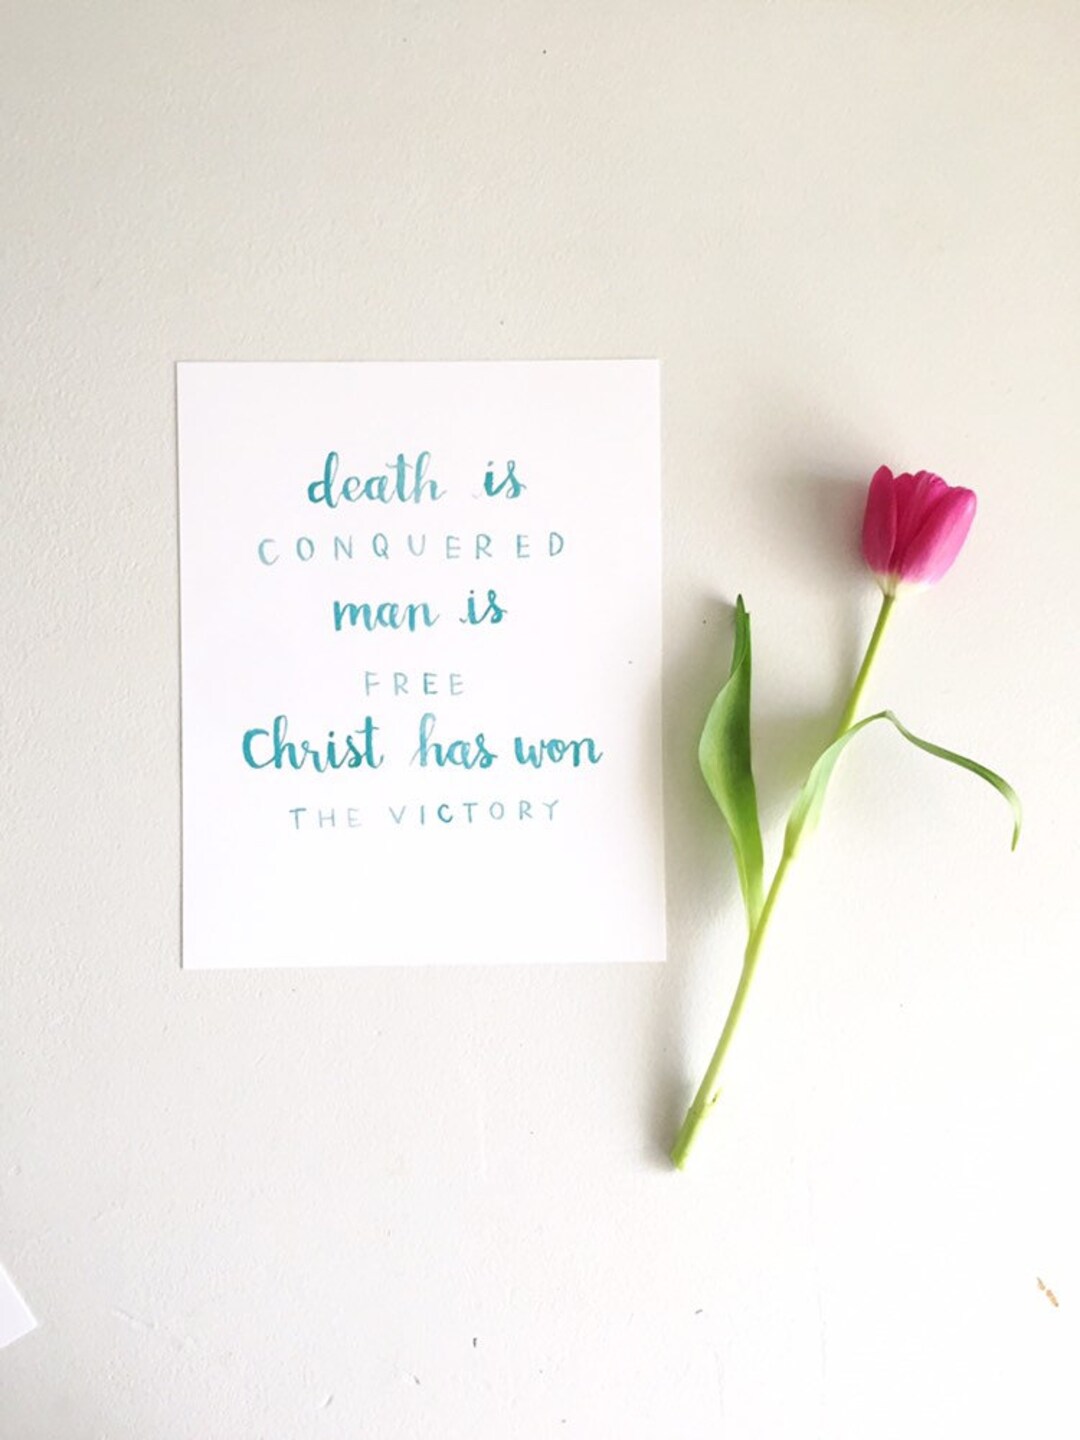 death is
CONQUERED
man is
FREE
Christ has won
THE VICTORY